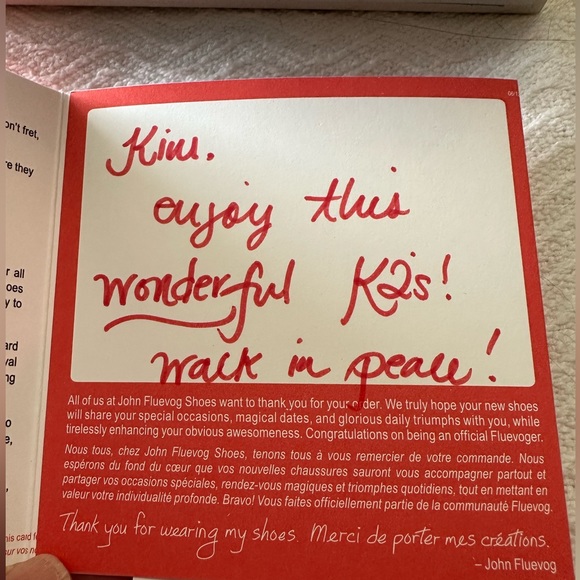 on't fret,
re they
r all
oes
y to
ard
val
ng
o
e,
his card f
sur vos n
Kim.
enjoy this
wonderful K2's!
walk in peace!
All of us at John Fluevog Shoes want to thank you for your order. We truly hope your new shoes
will share your special occasions, magical dates, and glorious daily triumphs with you, while
tirelessly enhancing your obvious awesomeness. Congratulations on being an official Fluevoger.
Nous tous, chez John Fluevog Shoes, tenons tous à vous remercier de votre commande. Nous
espérons du fond du cœur que vos nouvelles chaussures sauront vous accompagner partout et
partager vos occasions spéciales, rendez-vous magiques et triomphes quotidiens, tout en mettant en
valeur votre individualité profonde. Bravo! Vous faites officiellement partie de la communauté Fluevog.
Thank you for wearing my shoes. Merci de porter mes créations.
– John Fluevog